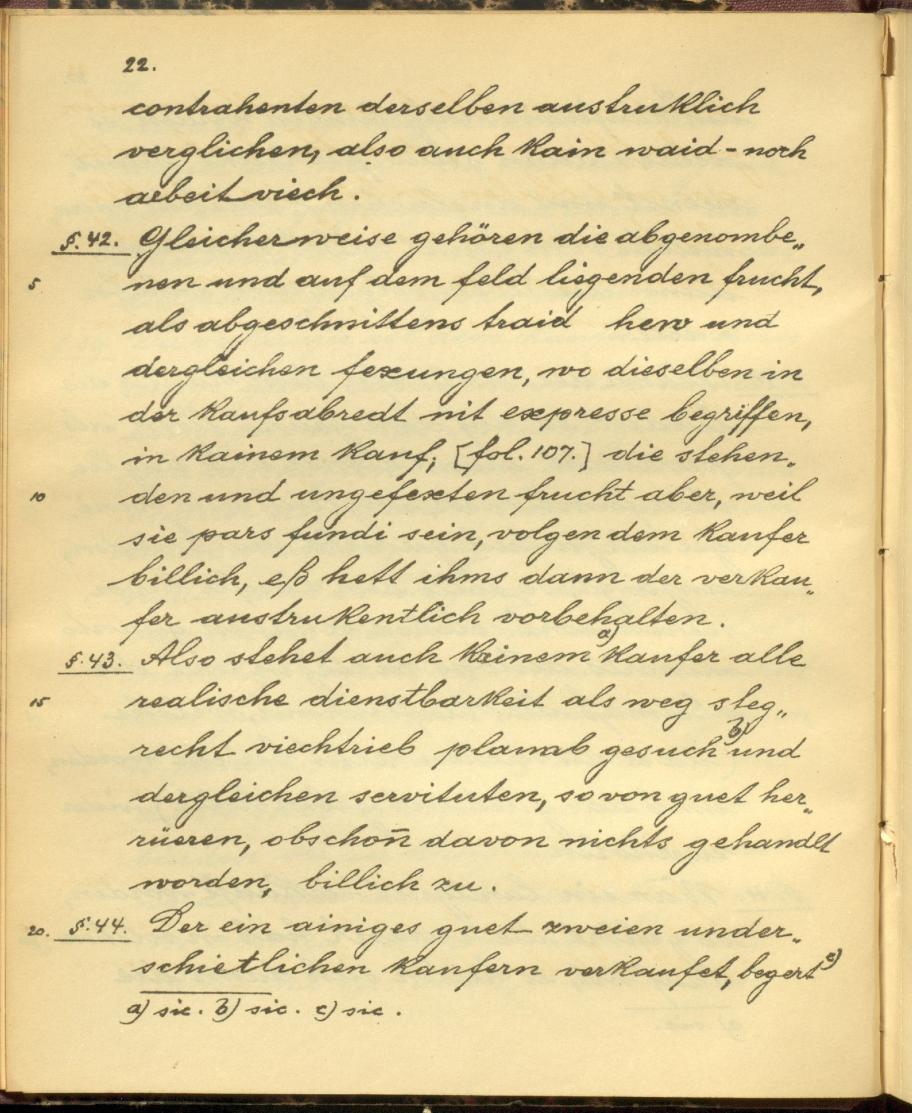 22.
contrahenten derselben austruklich
verglichen, also auch kain waid - noch
arbeit viech.
§. 42. Gleicher weise gehören die abgenombe„
5 nen und auf dem feld liegenden frucht,
als abgeschnittens traid hew und
dergleichen fexungen, wo dieselben in
der kaufsabredt nit expresse begriffen,
in kainem kauf; [fol. 107.] die stehen„
10 den und ungefexten frucht aber, weil
sie pars fundi sein, volgen dem kaufer
billich, eß hett ihms dann der verkau„
fer austrukentlich vorbehalten.
§. 43. Also stehet auch keinem a) kaufer alle
15 realische dienstbarkeit als weg steg„
recht viechtrieb plamb gesuch b) und
dergleichen servituten, so von guet her„
rüeren, obschon̄ davon nichts gehandlt
worden, billich zu.
20. §. 44. Der ein ainiges guet zweien under„
schietlichen kaufern verkaufet, begert c)
a) sic. b) sic. c) sic.